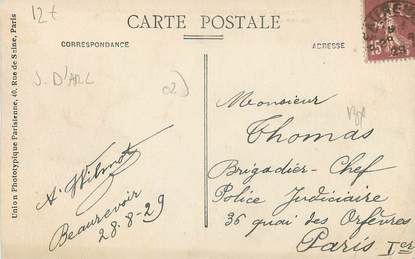 12t
CARTE POSTALE
CORRESPONDANCE
ADRESSE
J. D'ARC
02)
Union Phototypique Parisienne, 40, Rue de Seine, Paris
A. Wilmot
Beaurevoir
28-8-29
Monsieur
Thomas
Brigadier-Chef
Police Judiciaire
36 quai des Orfèvres
Paris Ier